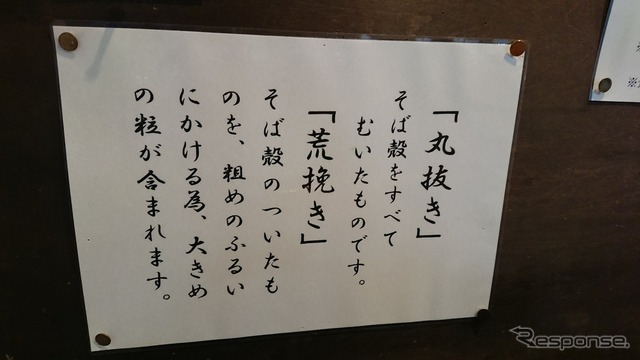 「丸抜き」
そば殻をすべて
むいたものです。
「荒挽き」
そば殻のついたも
のを、粗めのふるい
にかける為、大きめ
の粒が含まれます。
Response.